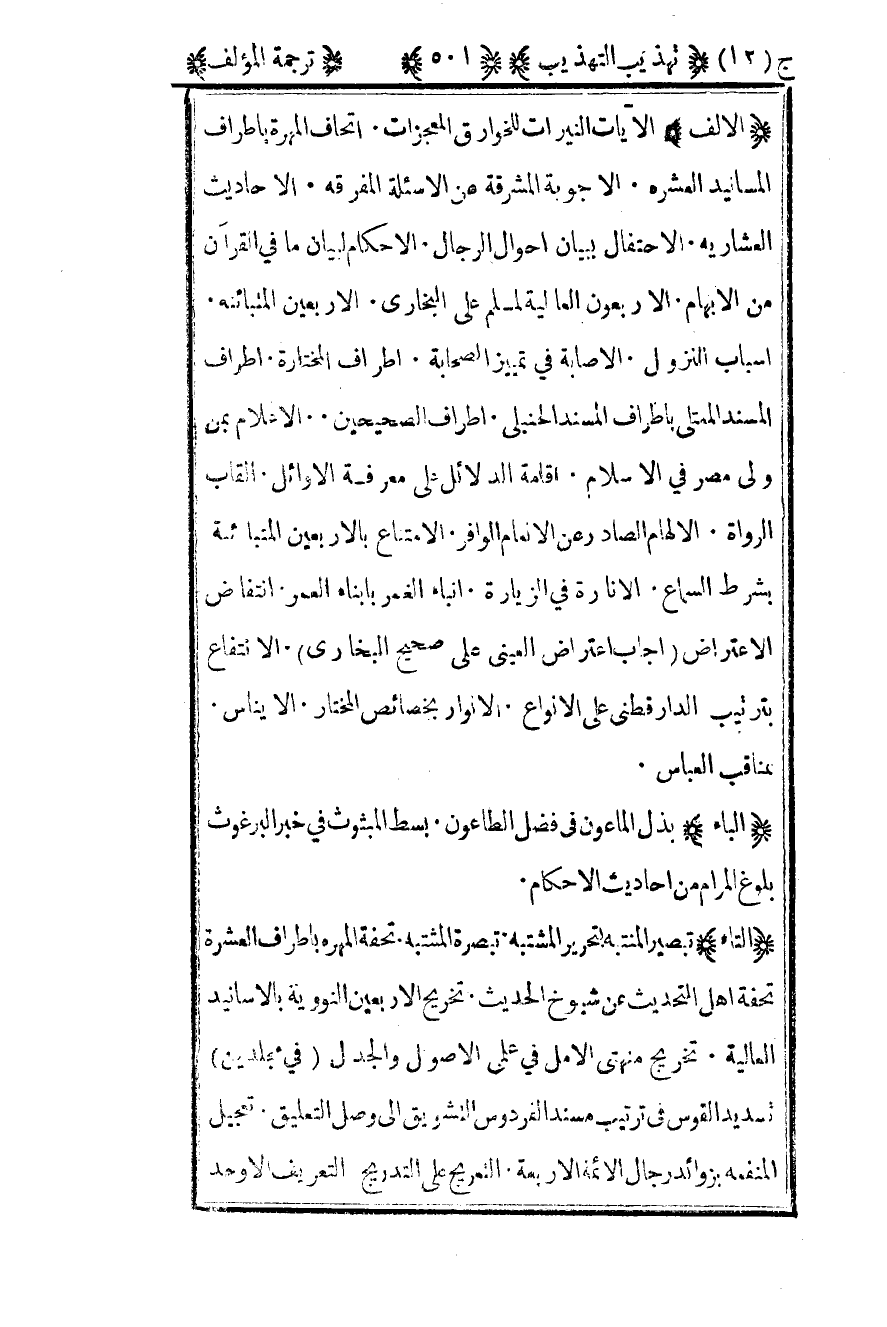 ج (١٢) ﴿ تهذيب التهذيب ﴾ ﴿ ٥٠١ ﴾ ﴿ ترجمة المؤلف ﴾
﴿ الالف ﴾ الآيات النيرات للخوارق المعجزات ٠ اتحاف المهرة باطراف
المسانيد العشره ٠ الاجوبة المشرقة عن الاسئلة المفرقه ٠ الاحاديث
العشاريه ٠ الاحتفال ببيان احوال الرجال ٠ الاحكام لبيان ما في القرآن
من الابهام ٠ الاربعون العالية لمسلم على البخارى ٠ الاربعين المتبائنه ٠
اسباب النزول ٠ الاصابة في تمييز الصحابة ٠ اطراف المختارة ٠ اطراف
المسند الممتلى باطراف المسند الحنبلى ٠ اطراف الصحيحين ٠ ٠ الاعلام بمن
ولى مصر في الاسلام ٠ اقامة الدلائل على معرفة الاوائل ٠ القاب
الرواة ٠ الالهام الصادر عن الانعام الوافر ٠ الامتناع بالاربعين المتبائنة
بشرط السماع ٠ الانارة في الزيارة ٠ انباء الغمر بابناء العمر ٠ انتفاض
الاعتراض ( اجاب اعتراض العينى على صحيح البخارى ) ٠ الانتفاع
بترتيب الدارقطنى على الانواع ٠ الانوار بخصائص المختار ٠ الايناس ٠
بمناقب العباس ٠
﴿ الباء ﴾ بذل الماعون فى فضل الطاعون ٠ بسط المبثوث في خبر البرغوث
بلوغ المرام من احاديث الاحكام ٠
﴿ التاء ﴾ تبصير المنتبه لتحرير المشتبه ٠ تبصرة المشتبه ٠ تحفة المهره باطراف العشرة
تحفة اهل التحديث عن شيوخ الحديث ٠ تخريج الاربعين النووية بالاسانيد
العالية ٠ تخريج منهتى الامل في علمى الاصول والجدل ( في مجلدين )
تسديد القوس فى ترتيب مسند الفردوس التشويق الى وصل التعليق ٠ تعجيل
المنفعه بزوائد رجال الائمة الاربعة ٠ التعريج على التدريج التعريف الاوحد